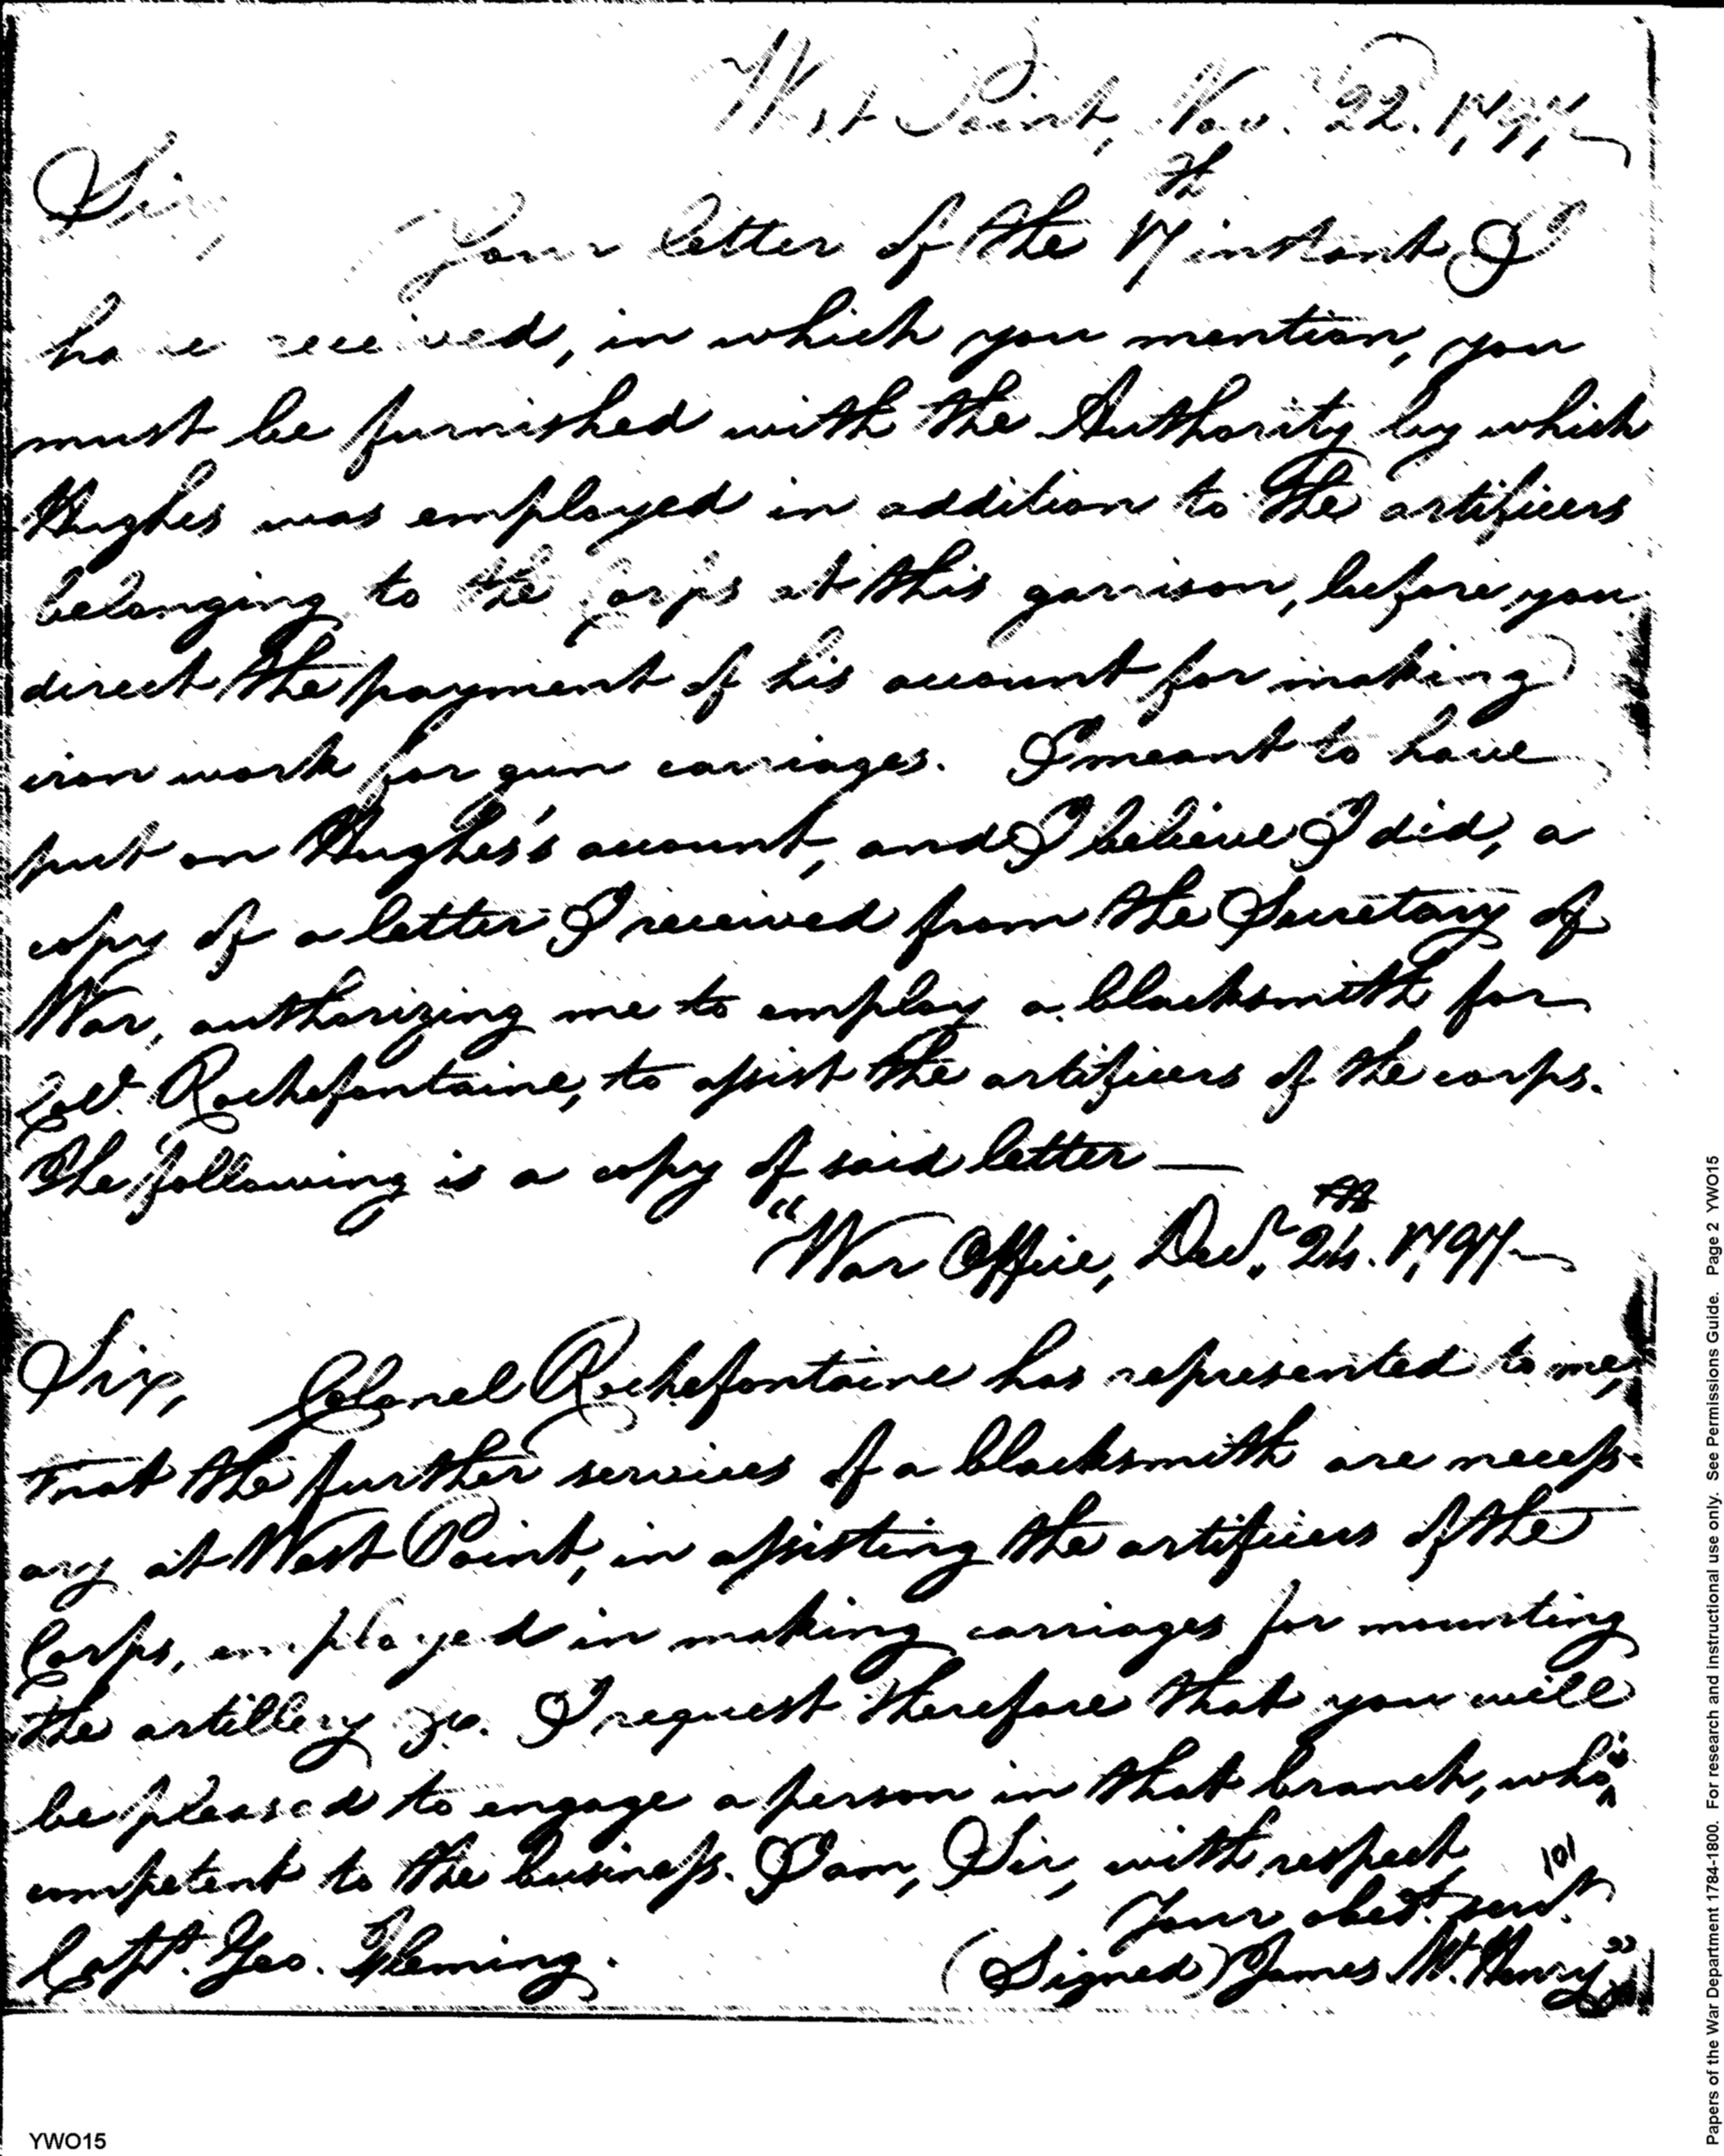 West Point, Nov. 22. 1797
Sir,
Your letter of the 7th instant I
have received, in which you mention, you
must be furnished with the Authority by which
Hughes was employed in addition to the artificers
belonging to the Corps at this garrison, before you
direct the payment of his account for making
iron work for gun carriages. I meant to have
put on Hughes's account, and I believe I did, a
copy of a letter I received from the Secretary of
War, authorizing me to employ a blacksmith for
Colo. Rochefontaine, to assist the artificers of the corps.
The following is a copy of said letter —
"War Office, Decr. 24th. 1797
Sir, Colonel Rochefontaine has represented to me,
that the further services of a blacksmith are necess-
ary at West Point, in assisting the artificers of the
Corps, employed in making carriages for mounting
the artillery &c. I request therefore that you will
be pleased to engage a person in that branch, who is
competent to the business. I am, Sir, with respect
101
Your obet. servt.
Capt. Geo. Fleming. (Signed) James McHenry"
YWO15
Papers of the War Department 1784-1800. For research and instructional use only. See Permissions Guide. Page 2 YWO15